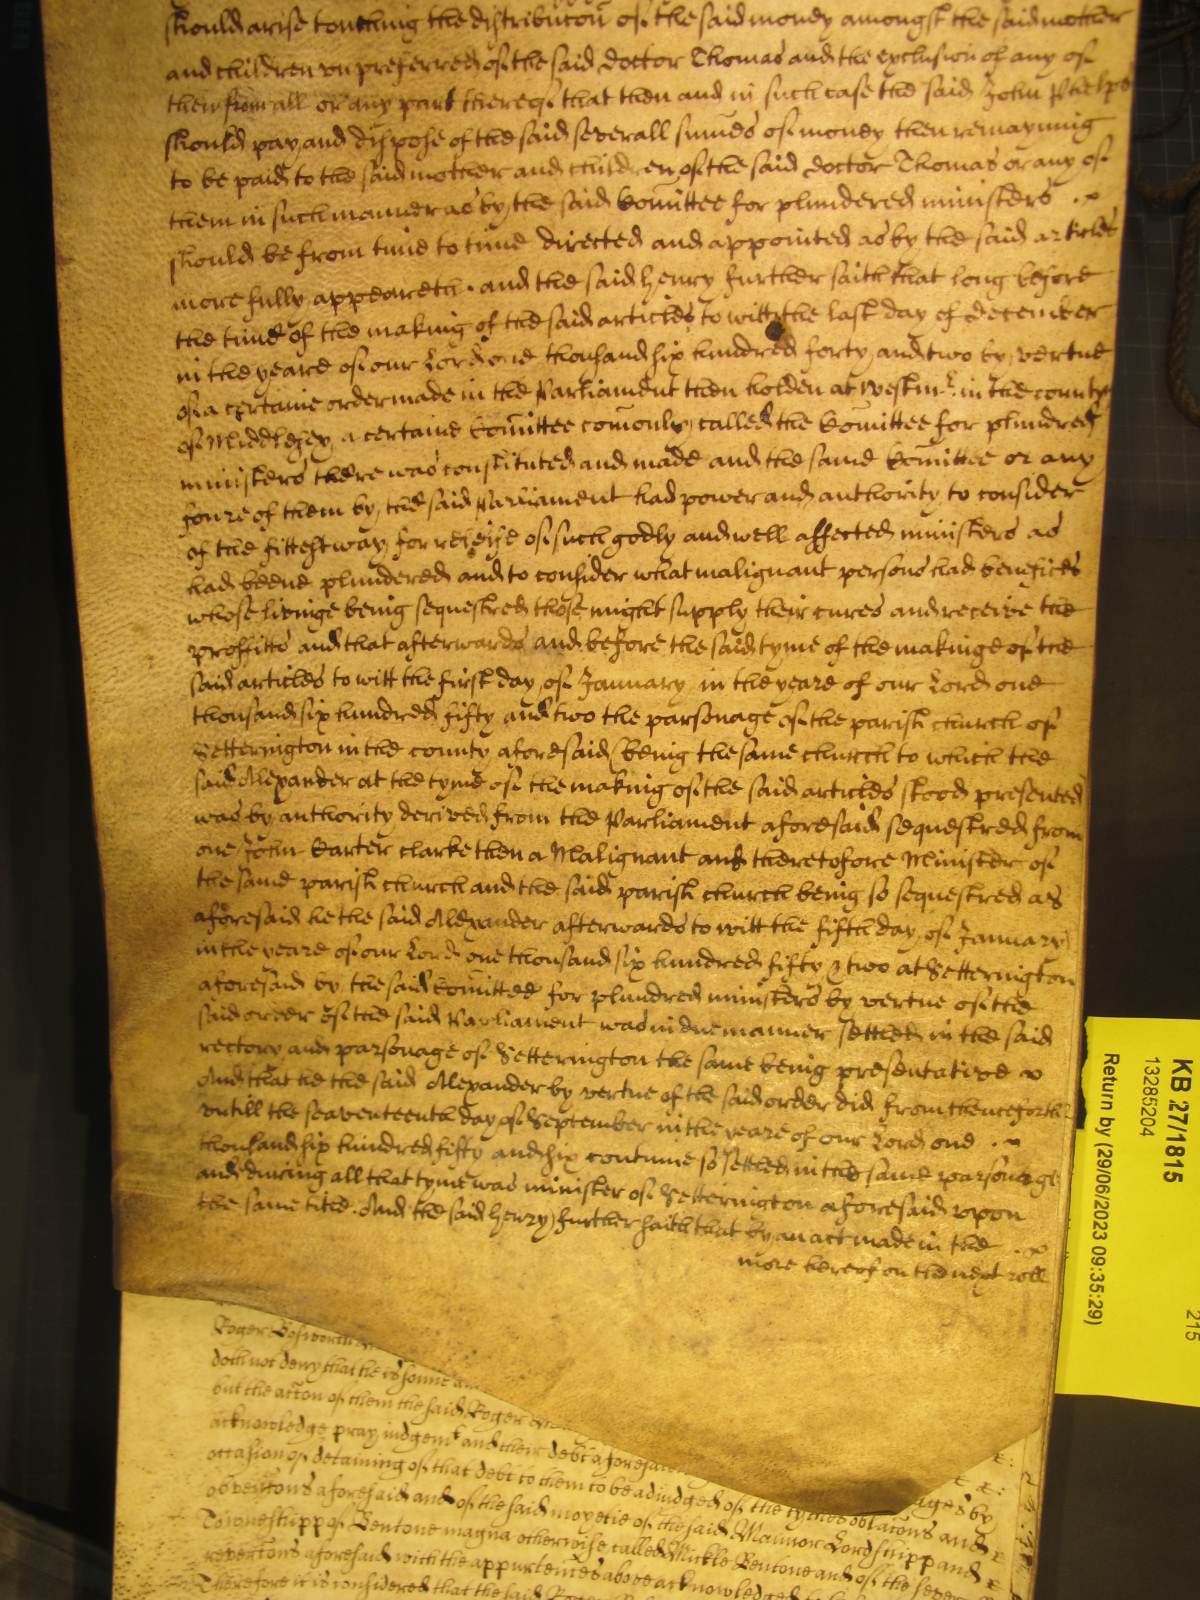 should arise touching the distribucon of the said money amongst the said mother
and children unpreferred of the said doctor Thomas and the exclusion of any of
them from all or any part thereof that then and in such case the said John Phelps
should pay and dispose of the said severall summes of money then remayning
to be paid to the said mother and children of the said doctor Thomas or any of
them in such manner as by the said Comittee for plundered ministers
should be from time to time directed and appointed as by the said articles
more fully appeareth. and the said Henry further saith that long before
the time of the making of the said articles to witt the last day of december
in the yeare of our Lord one thousand six hundred forty and two by vertue
of a certaine order made in the Parliament then holden at Westmr. in the county
of Middlesex a certaine Comittee comonly called the Comittee for plundred
ministers there was constituted and made and the same Comittee or any
foure of them by the said Parliament had power and authority to consider
of the fittest way for releife of such godly and well affected ministers as
had beene plundered and to consider what malignant persons had benefices
whose livinge being sequestred those might supply their cures and receive the
proffitts and that afterwards and before the said tyme of the makinge of the
said articles to witt the first day of January in the yeare of our Lord one
thousand six hundred fifty and two the parsonage of the parish church of
Setterington in the county aforesaid (being the same church to which the
said Alexander at the tyme of the making of the said articles stood presented
was by authority derived from the Parliament aforesaid sequestred from
one John Carter clarke then a Malignant and theretofore Minister of
the same parish church and the said parish church being so sequestred as
aforesaid he the said Alexander afterwards to witt the fifth day of January
in the yeare of our Lord one thousand six hundred fifty & two at Setterington
aforesaid by the said Comittee for plundred ministers by vertue of the
said order of the said Parliament was in due manner settled in the said
rectory and parsonage of Setterington the same being presentative
And that he the said Alexander by vertue of the said order did from thenceforth
untill the seaventeenth day of September in the yeare of our Lord one
thousand six hundred fifty and six continue so settled in the same parsonage
and during all that tyme was minister of Setterington aforesaid upon
the same title. And the said Henry further saith that by an act made in the
more hereof on the next roll
Roger Bosworth
doth not deny that he is sonne
but the accon of them the said Roger
acknowledge pray iudgemt and their debt aforesaid
occasion of detaining of that debt to them to be adiudged of the tythes oblacons and
ages by
obvencons aforesaid and of the said moyetie of the said Mannor Lordshipp and
Towneshipp of Bentone magna otherwise called Mickle Bentone and of the
revercons aforesaid with the appurtences above acknowledged
Therefore it is considered that the said Roger
KB 27/1815
13285204
Return by (29/06/2023 09:35:29)
215